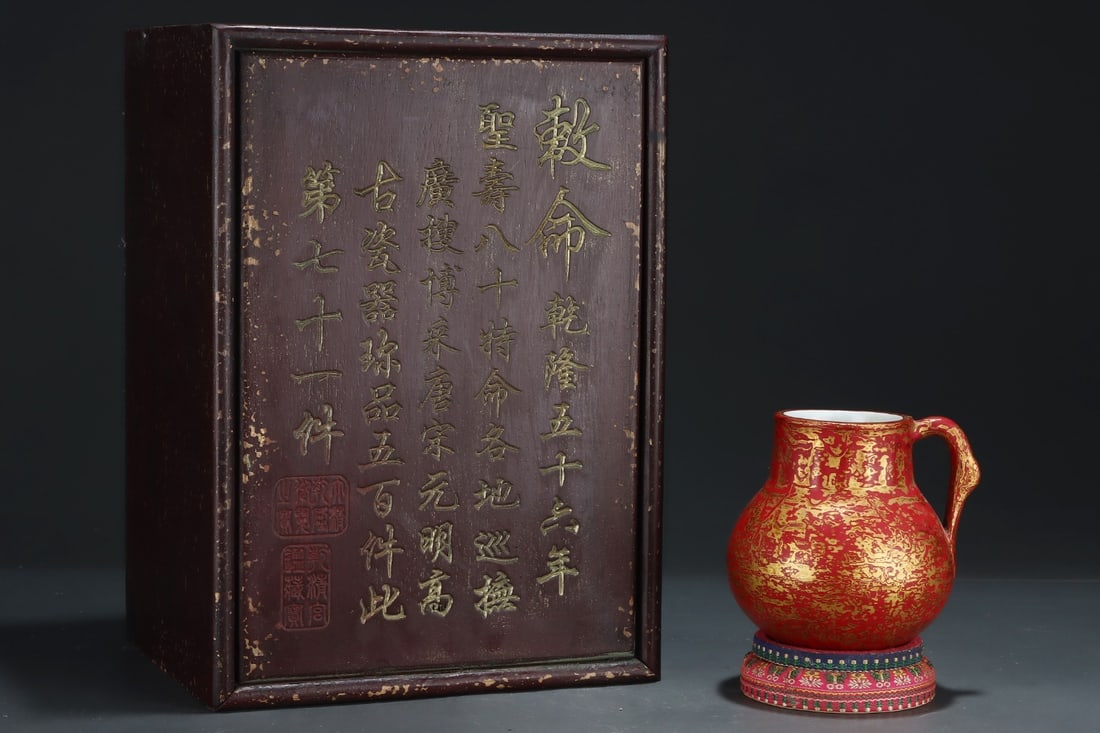 敕命乾隆五十六年
聖壽八十特命各地巡撫
廣搜博采唐宋元明高
古瓷器珍品五百件此
第七十一件